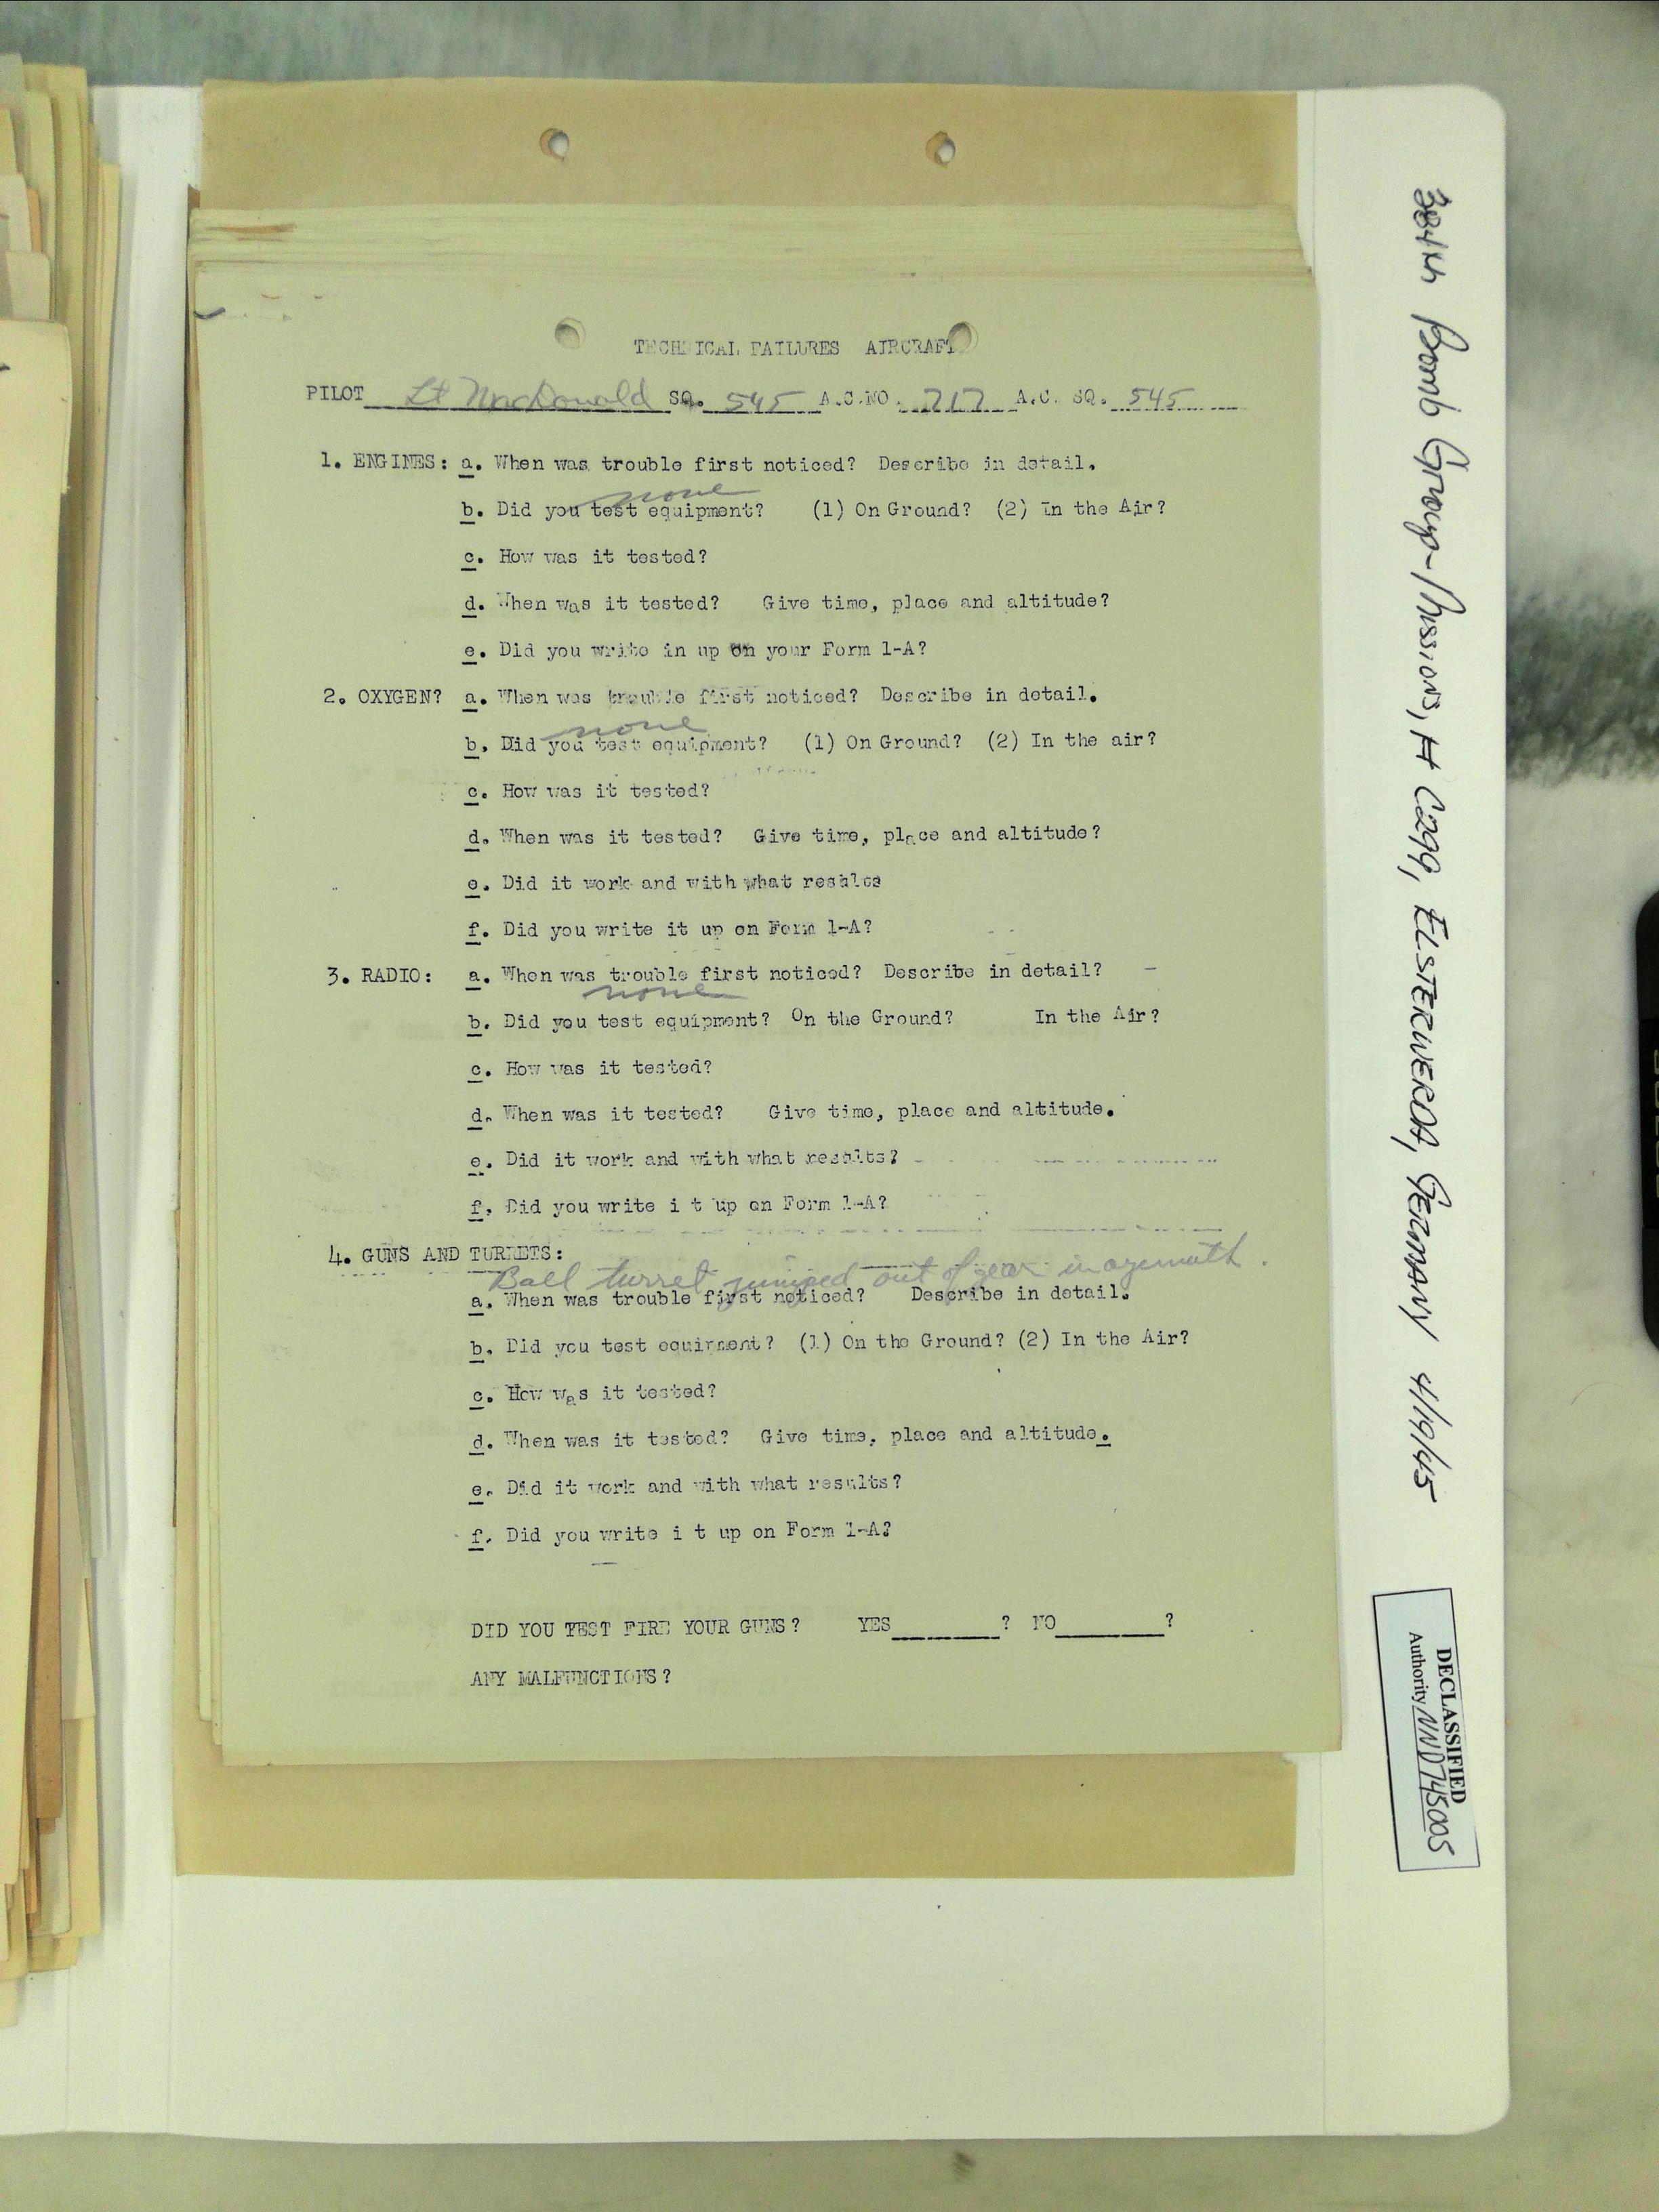 TECHNICAL FAILURES AIRCRAFT
PILOT Lt MacDonald SQ. 545 A.C.NO. 717 A.C. SQ. 545
1. ENGINES: a. When was trouble first noticed? Describe in detail.
none
b. Did you test equipment? (1) On Ground? (2) In the Air?
c. How was it tested?
d. When was it tested? Give time, place and altitude?
e. Did you write in up on your Form 1-A?
2. OXYGEN? a. When was trouble first noticed? Describe in detail.
none
b. Did you test equipment? (1) On Ground? (2) In the air?
c. How was it tested?
d. When was it tested? Give time, place and altitude?
e. Did it work and with what results
f. Did you write it up on Form 1-A?
3. RADIO: a. When was trouble first noticed? Describe in detail?
none
b. Did you test equipment? On the Ground? In the Air?
c. How was it tested?
d. When was it tested? Give time, place and altitude.
e. Did it work and with what results?
f. Did you write i t up on Form 1-A?
4. GUNS AND TURRETS:
Ball turret jumped out of gear in azemuth.
a. When was trouble first noticed? Describe in detail.
b. Did you test equipment? (1) On the Ground? (2) In the Air?
c. How was it tested?
d. When was it tested? Give time, place and altitude.
e. Did it work and with what results?
f. Did you write i t up on Form 1-A?
DID YOU TEST FIRE YOUR GUNS? YES________? NO________?
ANY MALFUNCTIONS?
384th Bomb Group-Missions, # C299, ELSTERWERDA, GERMANY 4/19/45
DECLASSIFIED
Authority NND745005